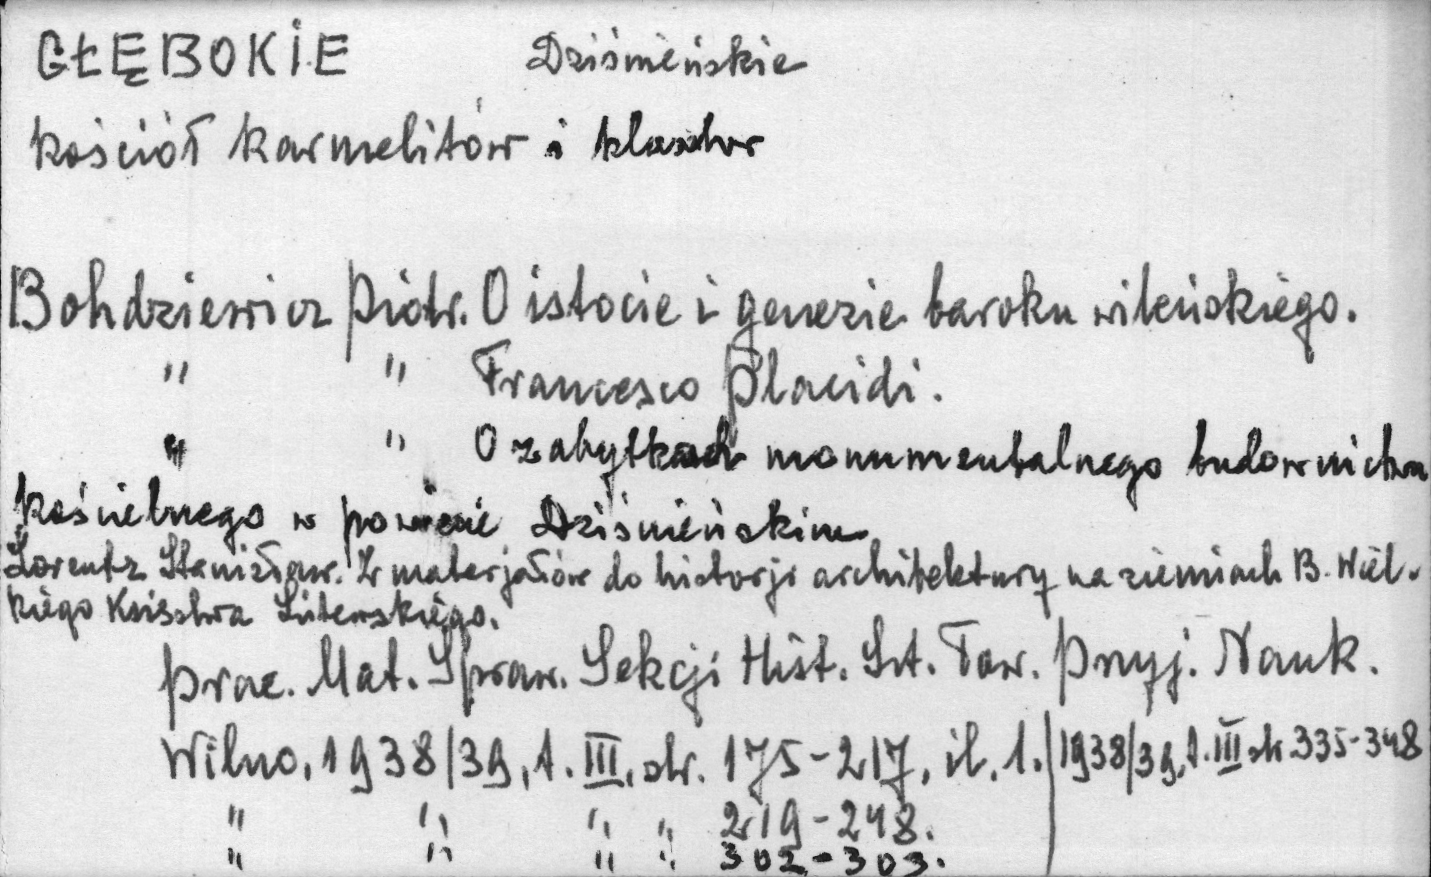 GŁĘBOKIE Dziśnieńskie
kościół karmelitów i klasztor
Bohdziewicz Piotr. O istocie i genezie baroku wileńskiego.
" " Francesco Placidi.
" " O zabytkach monumentalnego budownictwa
kościelnego w powiecie Dziśnieńskim
Lorentz Stanisław. Z materjałów do historji architektury na ziemiach B. Wiel-
kiego Księstwa Litewskiego.
Prac. Mat. Spraw. Sekcji Hist. Szt. Tow. Przyj. Nauk.
Wilno, 1938/39, t. III, str. 175-217, il. 1. | 1938/39, t. III str. 335-348
" " " " 219-248.
" " " " 302-303.